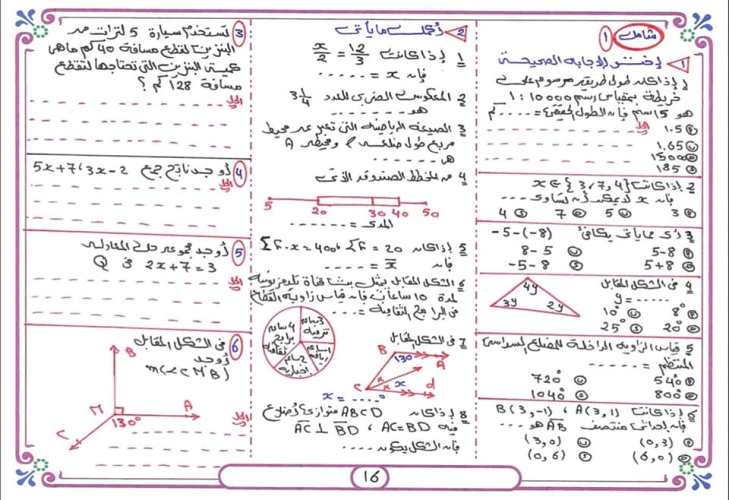 شامل ١
١ اختر الإجابة الصحيحة
١ إذا كان طول طريق مرسوم على
خريطة بمقياس رسم ١٠٠٠٠ : ١
هو 15 سم فإن الطول الحقيقى = ..... كم
1.5
1.65
1500
185
2 إذا كانت x ∈ {3, 7, 4}
فإن x لا يمكن أن تساوى ...
3 5 7 4
3 أى مما يأتى يكافئ -5-(-8)
5-8 8-5
5+8 -5-8
4 فى الشكل المقابل
y = ......
8° 10°
20° 25°
4y 3y 2y
5 قياس الزاوية الداخلة للمضلع السداسى
المنتظم = ....
540° 720°
800° 1040°
6 إذا كانت A(3,1) ، B(3,-1)
فإن إحداثى منتصف AB هو ...
(0,3) (3,0)
(6,0) (0,6)
2 أكمل ما يأتى
1 إذا كانت x/2 = 12/3
فإن x = ........
2 المعكوس الضربى للعدد 3 1/4
هو ........
3 الصيغة الرياضية التى تعبر عن محيط
مربع طول ضلعه ل ومحيطه A
هى ........
4 من مخطط الصندوق الآتى
5 20 30 40 50
المدى = ......
5 إذا كان Σf = 20 ، Σf.x = 400
فإن x̄ = .......
6 الشكل المقابل يمثل بث قناة تليفزيونية
لمدة 10 ساعات فإن قياس زاوية القطاع
فى البرامج الثقافية = ....
3 ساعة ترفيه
4 ساعة برامج ثقافية
1 ساعة رياضة
2 ساعة إخبارية
7 فى الشكل المقابل
B 130° A
C x x d
x = ....°
8 إذا كان ABCD متوازى أضلاع
فيه AC = BD ، AC ⊥ BD
فإن الشكل يكون ......
3 تستخدم سيارة 5 لترات من
البنزين لقطع مسافة 40 كم ما هى
كمية البنزين التى تحتاجها لتقطع
مسافة 128 كم ؟
الحل
4 أوجد ناتج جمع 3x-2 ، 5x+7
الحل
5 أوجد مجموعة حل المعادلة
2x+7 = 3 فى Q
الحل
6 فى الشكل المقابل
أوجد
m(∠CMB)
B
M A
130°
C
الحل
16